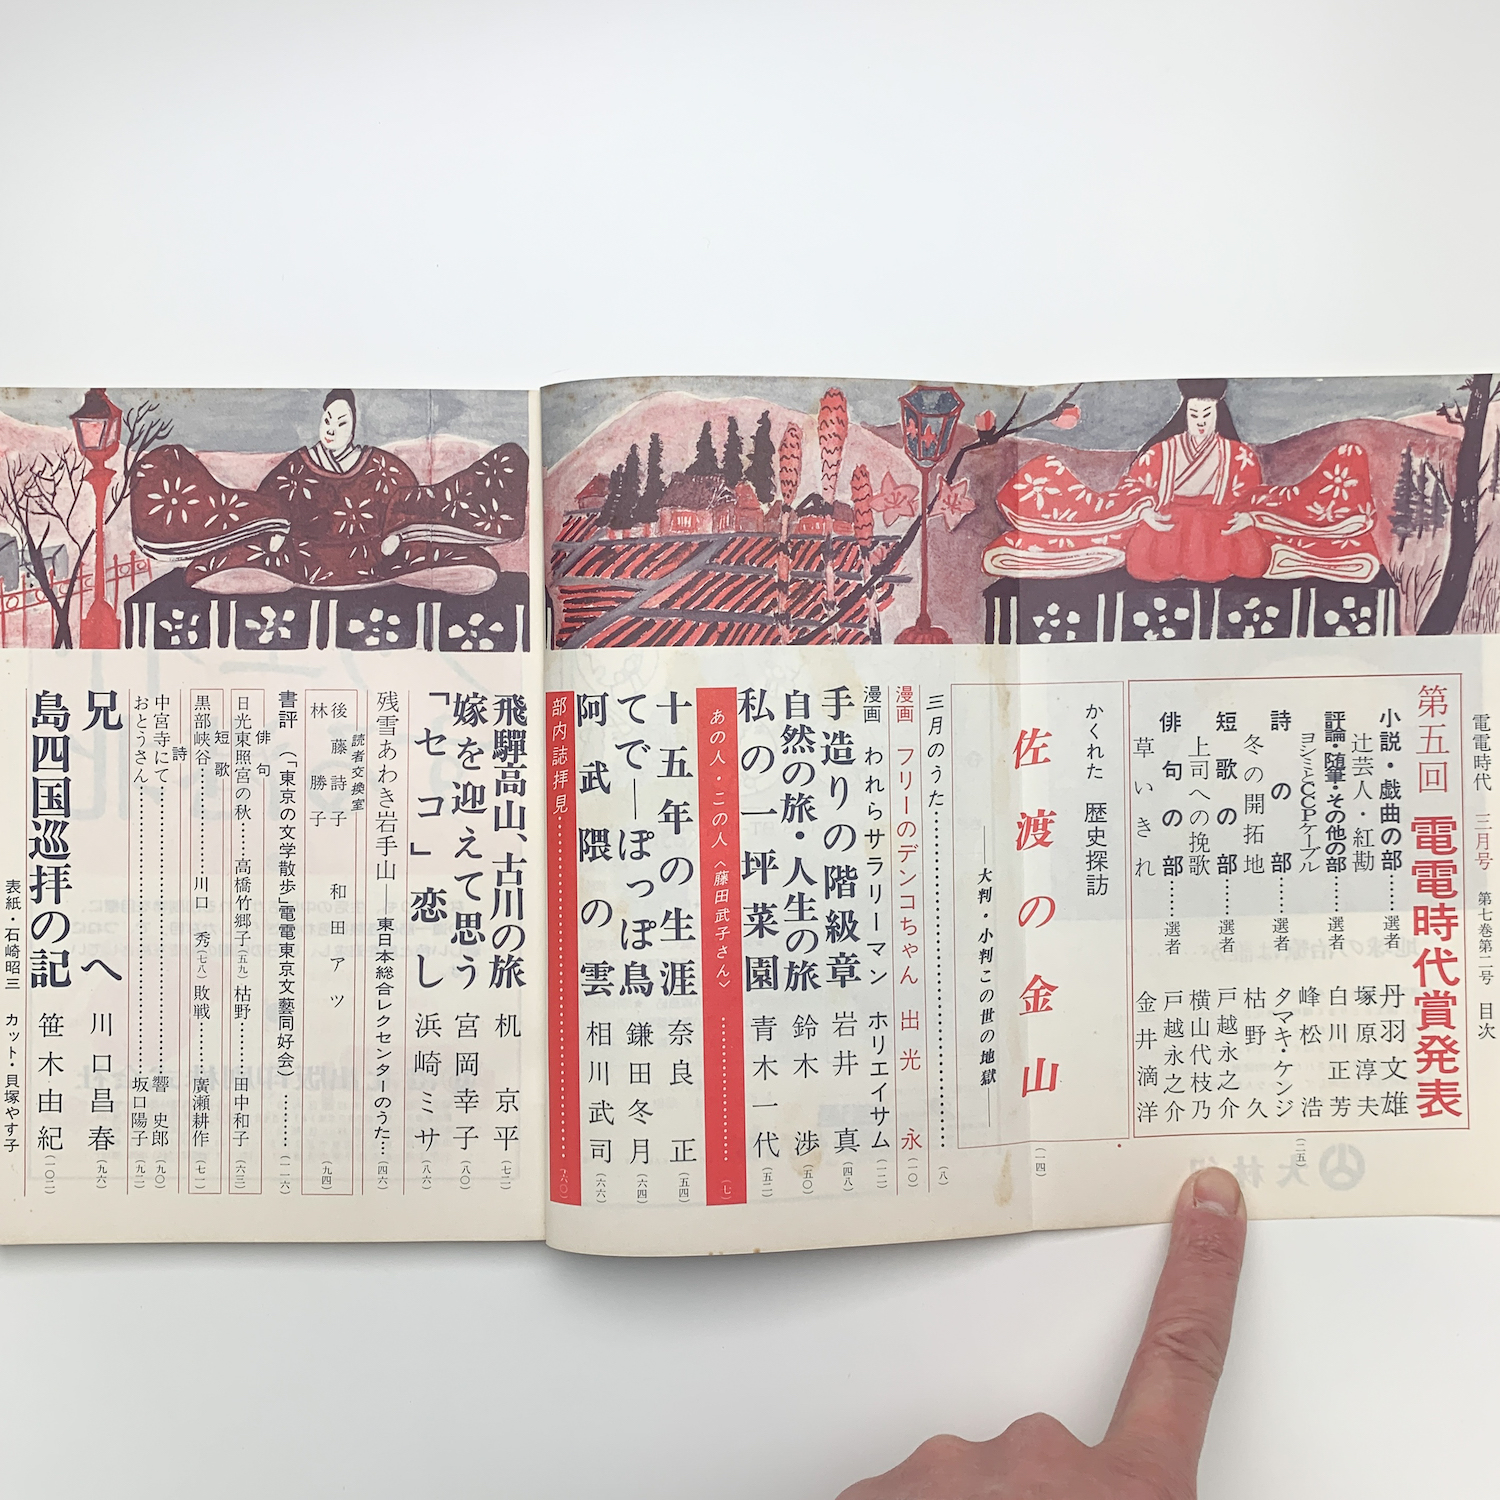 電電時代 三月号 第七巻第二号 目次
第五回 電電時代賞発表
小説・戯曲の部……選者 丹羽文雄
辻芸人・紅勘 塚原淳夫
評論・随筆・その他の部……選者 白川正芳
ヨシミとCCPケーブル 峰松浩
詩の部……選者 タマキ・ケンジ
冬の開拓地 枯野久
短歌の部……選者 戸越永之介
上司への挽歌 横山代枝乃
俳句の部……選者 戸越永之介
草いきれ 金井滴洋
(二五)
かくれた 歴史探訪
佐渡の金山
―大判・小判この世の地獄―
(一四)
三月のうた……(八)
漫画 フリーのデンコちゃん 出光永(一〇)
漫画 われらサラリーマン ホリエイサム(一二)
手造りの階級章 岩井真(四八)
自然の旅・人生の旅 鈴木渉(五〇)
私の一坪菜園 青木一代(五二)
あの人・この人〈藤田武子さん〉……(七)
十五年の生涯 奈良正(五四)
てで―ぽっぽ鳥 鎌田冬月(六四)
阿武隈の雲 相川武司(六六)
部内誌拝見……(六〇)
飛騨高山、古川の旅 机京平(七二)
嫁を迎えて思う 宮岡幸子(八〇)
「セコ」恋し 浜崎ミサ(八六)
残雪あわき岩手山―東日本総合レクセンターのうた…(四六)
読者交換室
後藤詩子 和田アツ
林勝子
(九四)
書評(「東京の文学散歩」電電東京文藝同好会)……(一一六)
俳句
日光東照宮の秋……高橋竹郷子(五九) 枯野……田中和子(六三)
短歌
黒部峡谷……川口秀(七八) 敗戦……廣瀬耕作(七一)
詩
中宮寺にて……響史郎(九〇)
おとうさん……坂口陽子(九二)
兄へ 川口昌春(九六)
島四国巡拝の記 笹木由紀(一〇二)
表紙・石崎昭三 カット・貝塚やす子